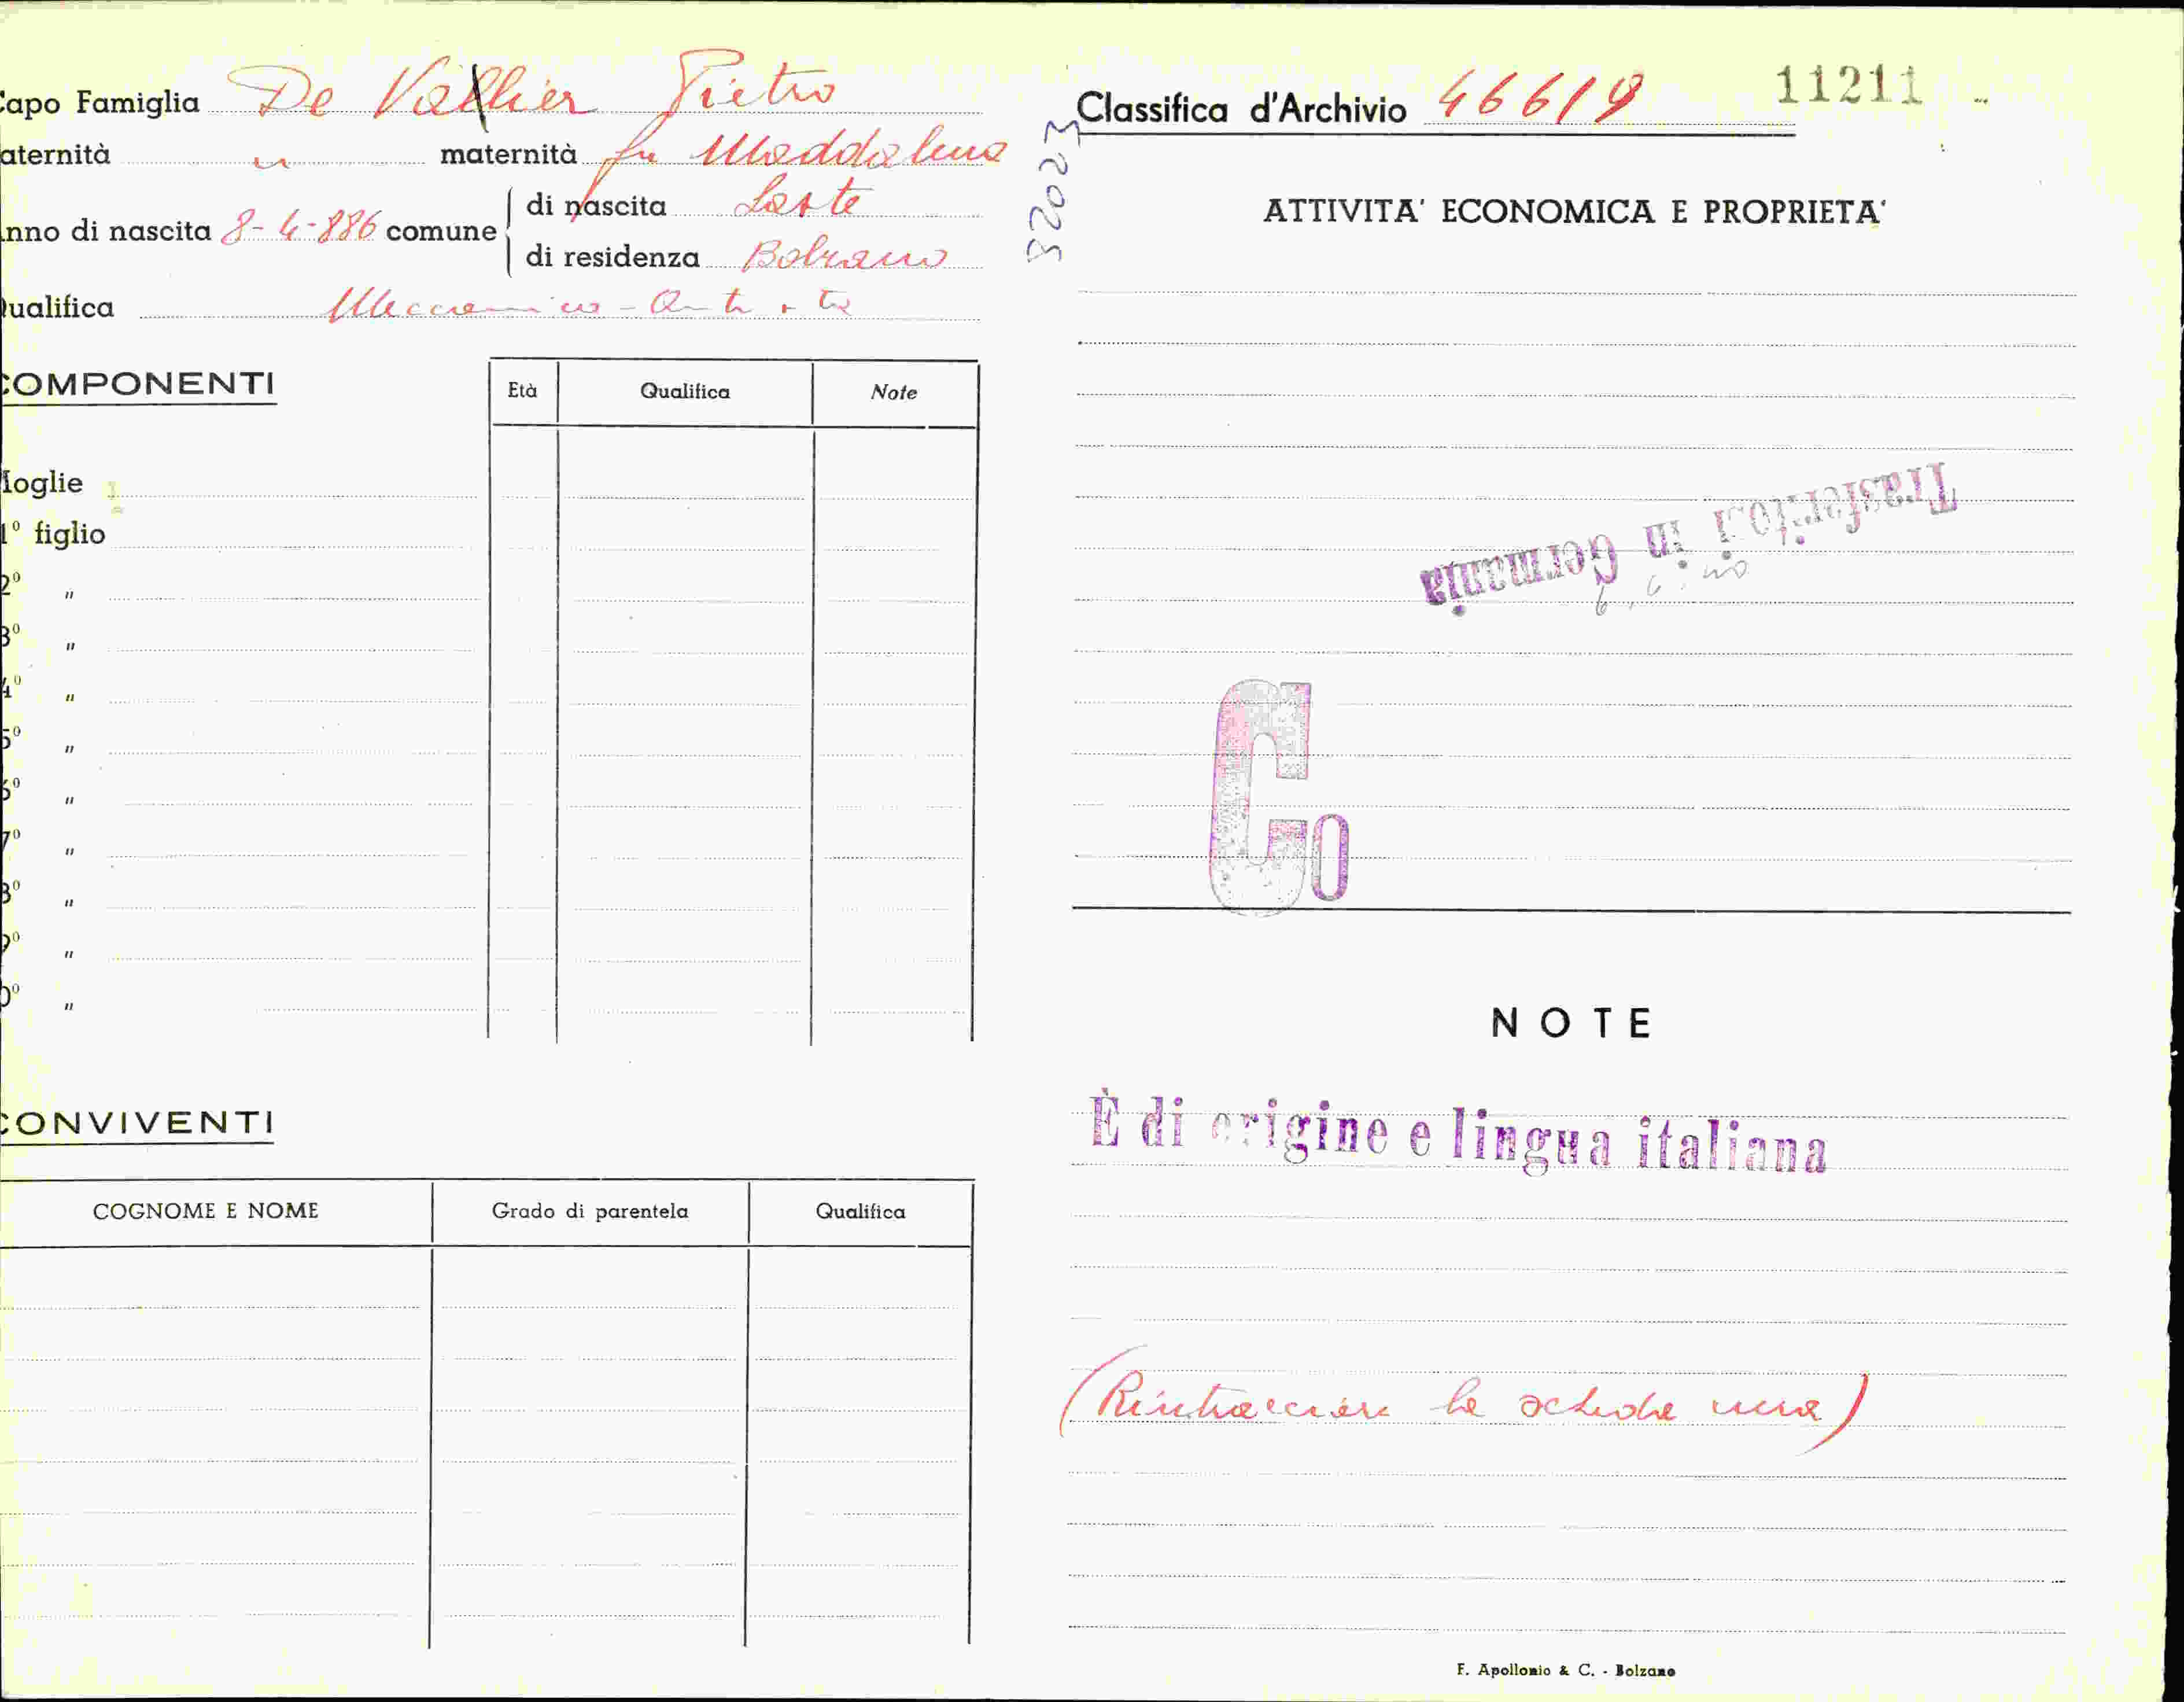 Capo Famiglia De Vallier Pietro
aternità " maternità fu Maddalena
nno di nascita 8-4-886 comune di nascita Laste
di residenza Bolzano
ualifica Meccanico - Autista
COMPONENTI
Età Qualifica Note
oglie
1° figlio
2° "
3° "
4° "
5° "
6° "
7° "
8° "
9° "
0° "
CONVIVENTI
COGNOME E NOME Grado di parentela Qualifica
32023
Classifica d'Archivio 46619 11211
ATTIVITA' ECONOMICA E PROPRIETA'
Trasferito.i in Germania
Co
NOTE
È di origine e lingua italiana
(Rintracciare la scheda vera)
F. Apollonio & C. - Bolzano